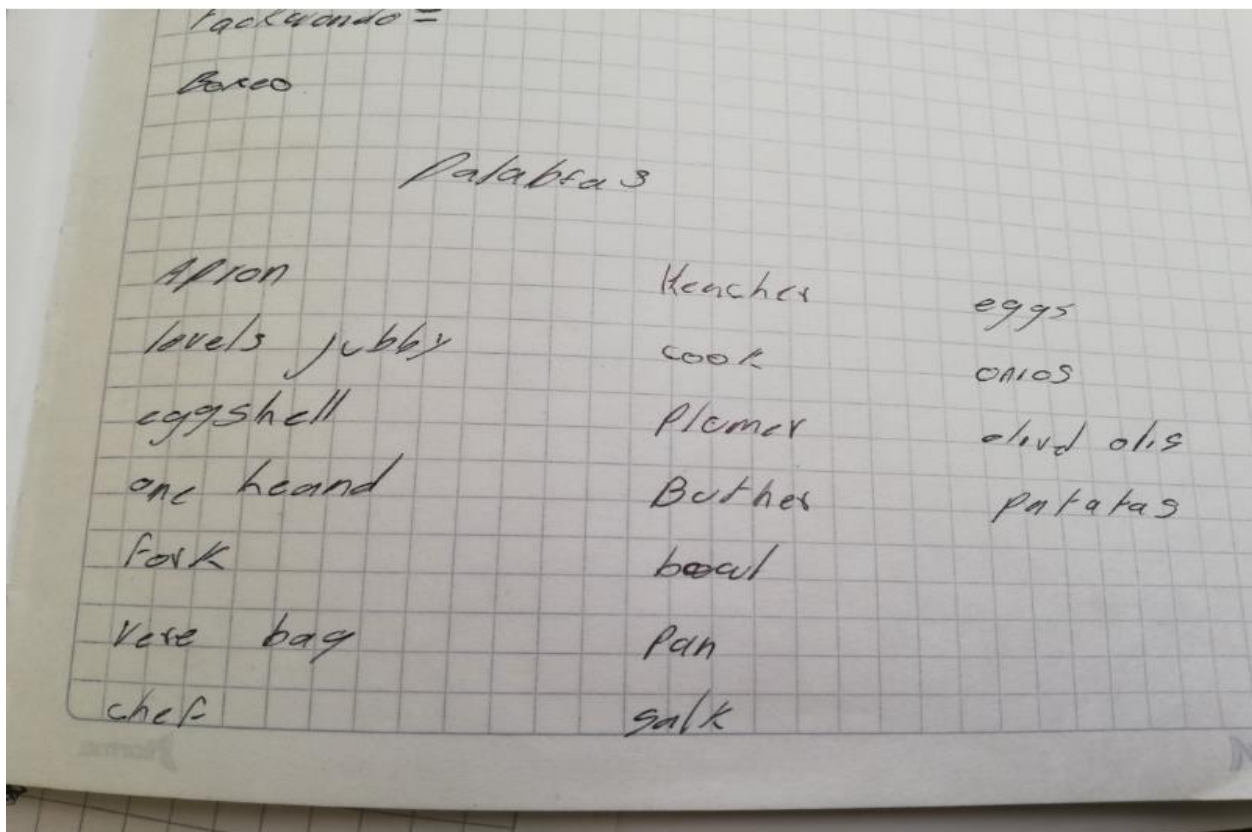 Taekwondo =
Boxeo
Palabras
Apron
levels jubby
eggshell
one heand
fork
Vere bag
chef
Keacher
cook
Plumer
Buther
boowl
pan
salk
eggs
onios
olivd olis
patatas
Norma